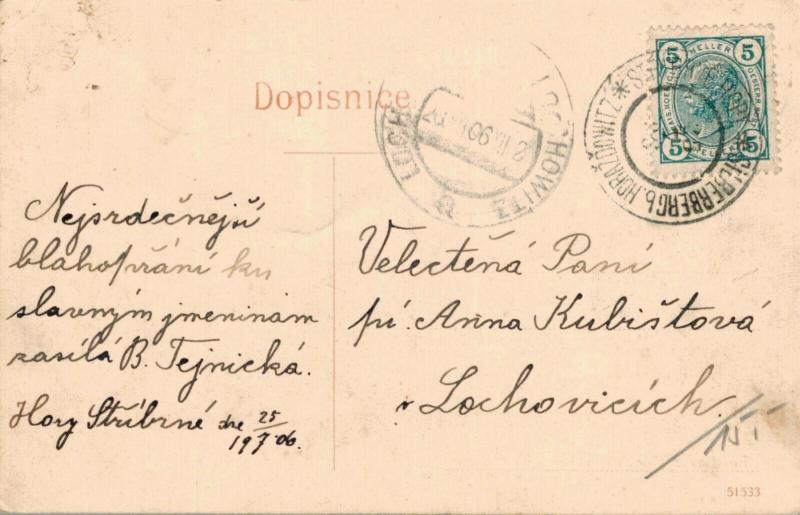 Dopisnice
LOCHOWITZ
5 HELLER 5
5 5
SILBERBERG b. HORAŽDOWITZ
Nejsrdečnější
blahopřání ku
slavným jmeninám
zasílá B. Tejnická.
Hory Stříbrné dne 25/7 1906.
Velectěná Paní
pí. Anna Kubištová
v Lochovicích.
51533